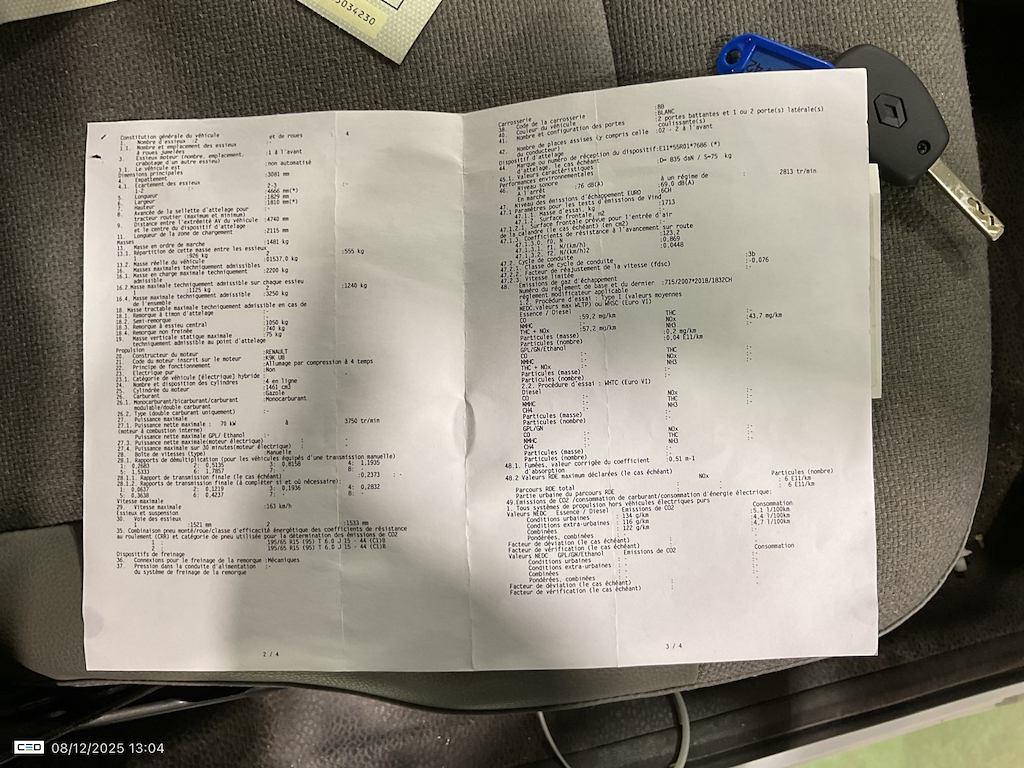 034230
Constitution générale du véhicule
1. Nombre d'essieux :2 et de roues 4
2. Nombre et emplacement des essieux
à roues jumelées :-
3. Essieux moteur (nombre, emplacement, :1 à l'avant
crabotage d'un autre essieu)
3.1. Le véhicule est :non automatisé
Dimensions principales
4. Empattement :3081 mm
4.1. Ecartement des essieux
1-2 2-3 :-
5. Longueur :4666 mm(*)
6. Largeur :1829 mm
7. Hauteur :1810 mm(*)
8. Avancée de la sellette d'attelage pour :-
tracteur routier (maximum et minimum)
9. Distance entre l'extrémité AV du véhicule :4740 mm
et le centre du dispositif d'attelage
11. Longueur de la zone de chargement :2115 mm
Masses
13. Masse en ordre de marche :1481 kg
13.1. Répartition de cette masse entre les essieux
:926 kg 2 :555 kg
13.2. Masse réelle du véhicule :01537,0 kg
16. Masses maximales techniquement admissibles
16.1. Masse en charge maximale techniquement :2200 kg
admissible
16.2. Masse maximale techniquement admissible sur chaque essieu
:1125 kg 2 :1240 kg
16.4. Masse maximale techniquement admissible :3250 kg
de l'ensemble
18. Masse tractable maximale techniquement admissible en cas de
18.1. Remorque à timon d'attelage :-
18.2. Semi-remorque :-
18.3. Remorque à essieu central :1050 kg
18.4. Remorque non freinée :740 kg
19. Masse verticale statique maximale :75 kg
techniquement admissible au point d'attelage
Propulsion
20. Constructeur du moteur :RENAULT
21. Code du moteur inscrit sur le moteur :K9K U8
22. Principe de fonctionnement :Allumage par compression à 4 temps
23. Electrique pur :Non
23.1. Catégorie de véhicule [électrique] hybride :-
24. Nombre et disposition des cylindres :4 en ligne
25. Cylindrée du moteur :1461 cm3
26. Carburant :Gazole
26.1. Monocarburant/bicarburant/carburant :Monocarburant
modulable/double carburant
26.2. Type (double carburant uniquement) :-
27. Puissance maximale
27.1. Puissance nette maximale : 70 kW à 3750 tr/min
(moteur à combustion interne)
Puissance nette maximale GPL/ Ethanol :-
27.3. Puissance nette maximale(moteur électrique) :-
27.4. Puissance maximale sur 30 minutes(moteur électrique) :-
28. Boîte de vitesses (type) :Manuelle
28.1. Rapports de démultiplication (pour les véhicules équipés d'une transmission manuelle)
1: 0,2683 2: 0,5135 3: 0,8158 4: 1,1935
5: 1,5333 6: 1,7857 7: - 8: -
28.1.1. Rapport de transmission finale (le cas échéant) :0,2373 :-
28.1.2. Rapports de transmission finale (à compléter si et où nécessaire):
1: 0,0637 2: 0,1219 3: 0,1936 4: 0,2832
5: 0,3638 6: 0,4237 7: - 8: -
Vitesse maximale
29. Vitesse maximale :163 km/h
Essieux et suspension
30. Voie des essieux
1 :1521 mm 2 :1533 mm
35. Combinaison pneu monté/roue/classe d'efficacité énergétique des coefficients de résistance
au roulement (CRR) et catégorie de pneu utilisée pour la détermination des émissions de CO2
1 : 195/65 R15 (95) T 6.0 J 15 - 44 (C1)B
2 : 195/65 R15 (95) T 6.0 J 15 - 44 (C1)B
Dispositifs de freinage
36. Connexions pour le freinage de la remorque :Mécaniques
37. Pression dans la conduite d'alimentation :-
du système de freinage de la remorque
2 / 4
Carrosserie
38. Code de la carrosserie :BB
40. Couleur du véhicule :BLANC
41. Nombre et configuration des portes :2 portes battantes et 1 ou 2 porte(s) latérale(s)
coulissante(s)
42. Nombre de places assises (y compris celle :02 - 2 à l'avant
du conducteur)
Dispositif d'attelage
44. Marque ou numéro de réception du dispositif:E11*55R01*7686 (*)
d'attelage, le cas échéant
45.1. Valeurs caractéristiques :D= 835 daN / S=75 kg
Performances environnementales
46. Niveau sonore
A l'arrêt :76 dB(A) à un régime de : 2813 tr/min
En marche :69.0 dB(A)
47. Niveau des émissions d'échappement EURO :6CH
47.1 Paramètres pour les tests d'émissions de Vind
47.1.1. Masse d'essai, kg :1713
47.1.2. Surface frontale, m2
47.1.2.1. Surface frontale prévue pour l'entrée d'air
de la calandre (le cas échéant) (en cm2) :-
47.1.3. Coefficients de résistance à l'avancement sur route
47.1.3.0. f0, N :123.2
47.1.3.1. f1, N/(km/h) :0.869
47.1.3.2. f2, N/(km/h)2 :0.0448
47.2. Cycle de conduite
47.2.1. Classe de cycle de conduite :3b
47.2.2. Facteur de réajustement de la vitesse (fdsc) :-0,076
47.2.3. Vitesse limitée :-
48. Emissions de gaz d'échappement
Numéro du règlement de base et du dernier :715/2007*2018/1832CH
règlement modificateur applicable
1.2. Procédure d'essai : Type I (valeurs moyennes
NEDC,valeurs max WLTP) ou WHSC (Euro VI)
Essence / Diesel
CO :59,2 mg/km THC :-
NMHC :- NOx :43.7 mg/km
THC + NOx :57.2 mg/km NH3 :-
Particules (masse) :0.2 mg/km
Particules (nombre) :0.04 E11/km
GPL/GN/Ethanol
CO :- THC :-
NMHC :- NOx :-
THC + NOx :- NH3 :-
Particules (masse) :-
Particules (nombre) :-
2.2. Procédure d'essai : WHTC (Euro VI)
Diesel
CO :- NOx :-
NMHC :- THC :-
CH4 :- NH3 :-
Particules (masse) :-
Particules (nombre) :-
GPL/GN
CO :- NOx :-
NMHC :- THC :-
CH4 :- NH3 :-
Particules (masse) :-
Particules (nombre) :-
48.1. Fumées, valeur corrigée du coefficient :0.51 m-1
d'absorption
48.2 Valeurs RDE maximum déclarées (le cas échéant)
NOx Particules (nombre)
Parcours RDE total : : 6 E11/km
Partie urbaine du parcours RDE : : 6 E11/km
49.Emissions de CO2 /consommation de carburant/consommation d'énergie électrique:
1. Tous systèmes de propulsion hors véhicules électriques purs
Valeurs NEDC Essence / Diesel Emissions de CO2 Consommation
Conditions urbaines : 134 g/km :5,1 l/100km
Conditions extra-urbaines : 116 g/km :4,4 l/100km
Combinée : 122 g/km :4,7 l/100km
Pondérées, combinées :- :-
Facteur de déviation (le cas échéant) :-
Facteur de vérification (le cas échéant) :-
Valeurs NEDC GPL/GN/Ethanol Emissions de CO2 Consommation
Conditions urbaines : - :-
Conditions extra-urbaines : - :-
Combinées : - :-
Pondérées, combinées : - :-
Facteur de déviation (le cas échéant) :
Facteur de vérification (le cas échéant) :
3 / 4
CEO 08/12/2025 13:04